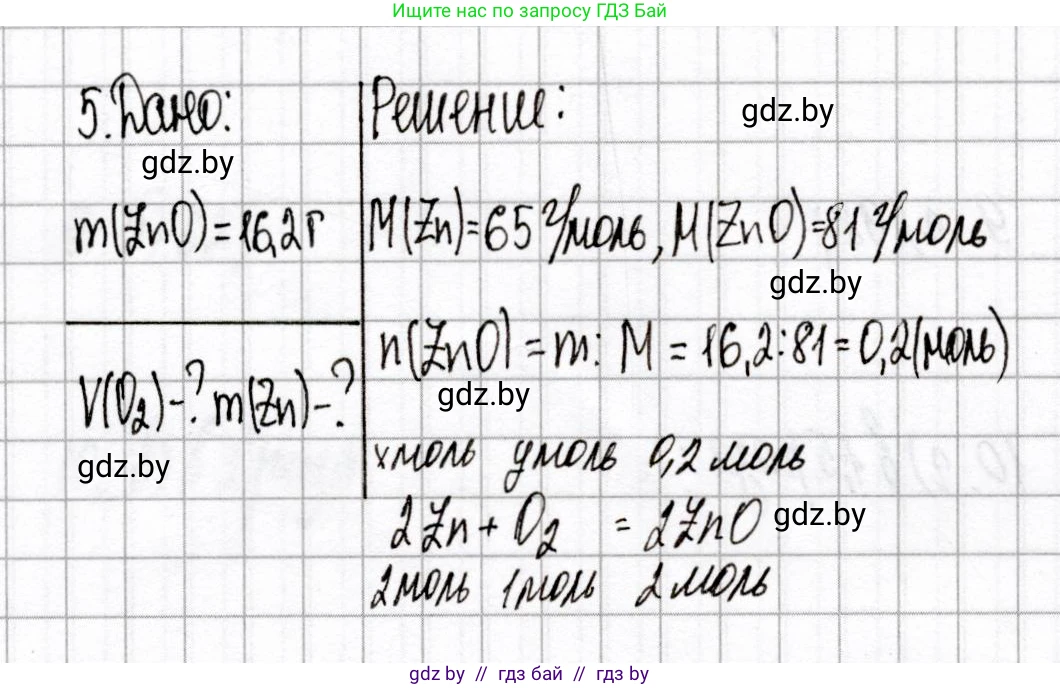 Ищите нас по запросу ГДЗ Бай
5. Дано:
Решение:
gdz.by
gdz.by
m(ZnO) = 16,2 г
M(Zn)=65 г/моль, M(ZnO)=81 г/моль
gdz.by
n(ZnO) = m : M = 16,2:81 = 0,2(моль)
V(O₂)-? m(Zn)-?
gdz.by
gdz.by
x моль y моль 0,2 моль
2Zn + O₂ = 2ZnO
gdz.by
2 моль 1 моль 2 моль
gdz by // гдз бай // гдз by